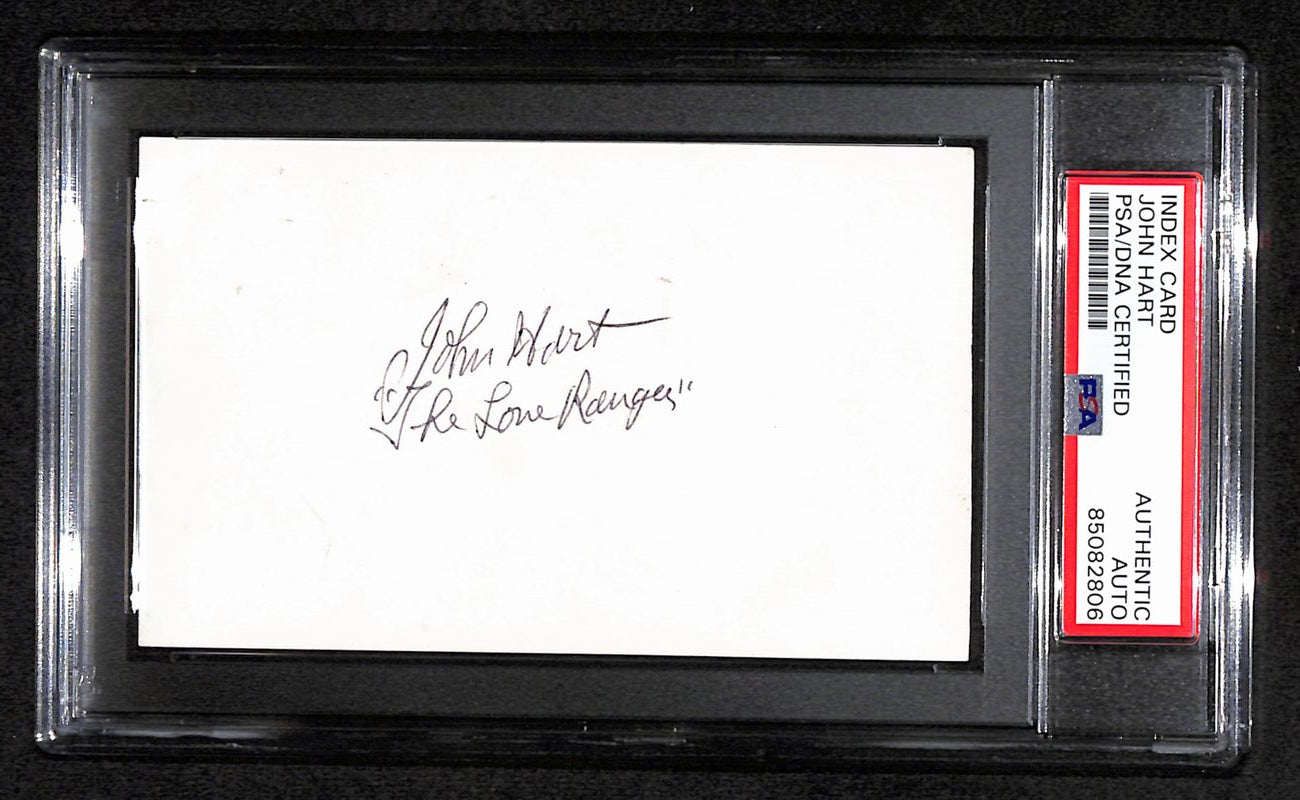 John Hart
"The Lone Ranger"
INDEX CARD
JOHN HART
PSA/DNA CERTIFIED
PSA
AUTHENTIC
AUTO
85082806